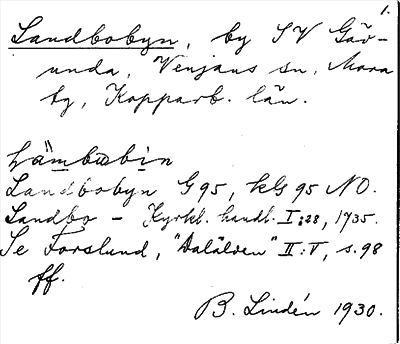 1.
Landbobyn, by SV Gäv-
unda, Venjans sn, Mora
tg, Kopparb. län.
Lämbωbin
Landbobyn G95, kG 95 NO.
Landbo - Kyrkl. handl. I:28, 1735.
Se Forslund, "Dalälven" II:V, s. 98
ff.
B. Lindén 1930.